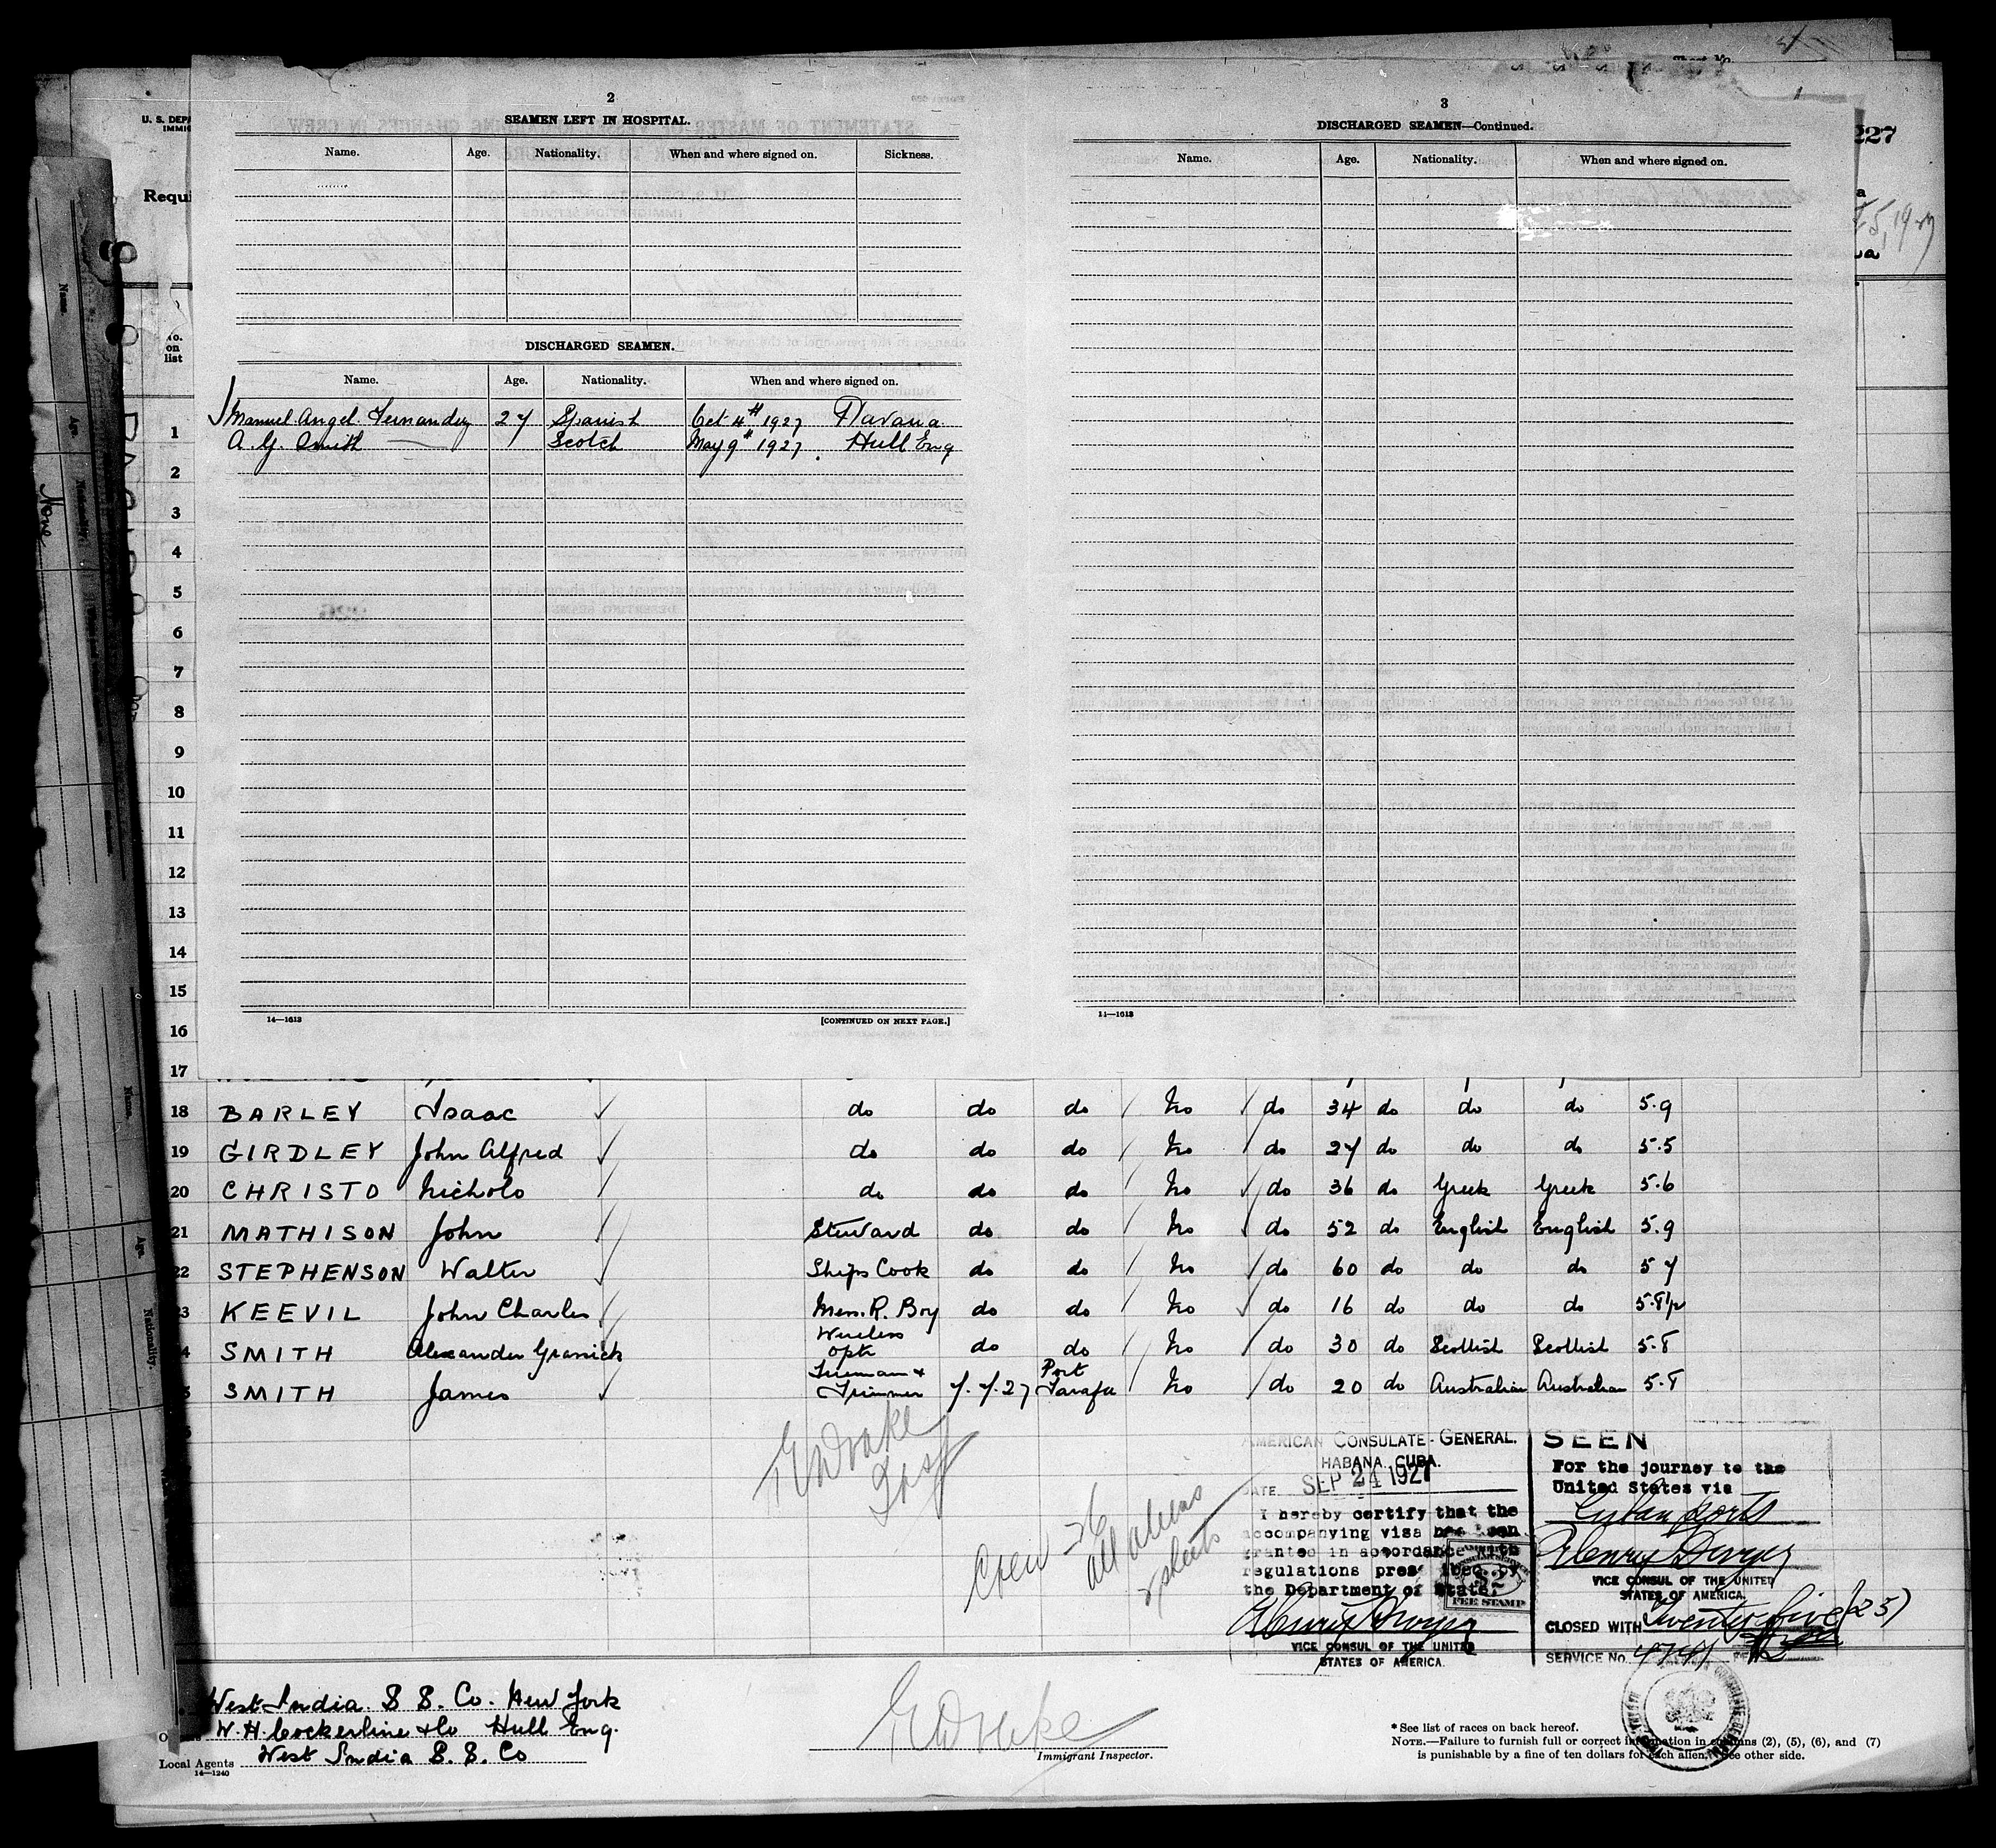 U. S. DEPA
IMMIG
Requi
No.
on
list
227
5, 1927
2
SEAMEN LEFT IN HOSPITAL.
Name. Age. Nationality. When and where signed on. Sickness.
DISCHARGED SEAMEN.
Name. Age. Nationality. When and where signed on.
Manuel Angel Fernandez 27 Spanish Oct 4th 1927 Havana
A. G. Smith Scotch May 9th 1927. Hull Eng
14—1613 [CONTINUED ON NEXT PAGE.]
3
DISCHARGED SEAMEN—Continued.
Name. Age. Nationality. When and where signed on.
14—1613
Name
Age.
Nationality.
None
Name.
Age.
Nationality.
1
2
3
4
5
6
7
8
9
10
11
12
13
14
15
16
17
18 BARLEY Isaac do do do No do 34 do do do 5.9
19 GIRDLEY John Alfred do do do No do 27 do do do 5.5
20 CHRISTO Nicholo do do do No do 36 do Greek Greek 5.6
21 MATHISON John Steward do do No do 52 do English English 5.9
22 STEPHENSON Walter Ships Cook do do No do 60 do do do 5 7
23 KEEVIL John Charles Mess. R. Boy do do No do 16 do do do 5.8½
4 SMITH Alexander Grassick Wireless Optr do do No do 30 do Scottish Scottish 5.8
SMITH James Fireman & Trimmer 7.7.27 Port Tarafa No do 20 do Australian Australian 5.8
Drake
Insp
Crew 26
all aliens
2 sheets
AMERICAN CONSULATE-GENERAL.
HABANA. CUBA.
DATE SEP 24 1927
I hereby certify that the
accompanying visa has been
granted in accordance with
regulations prescribed by
the Department of State.
$2
FEE STAMP
Henry Dwyer
VICE CONSUL OF THE UNITED
STATES OF AMERICA.
SEEN
For the journey to the
United States via
Cuban ports
Henry Dwyer
VICE CONSUL OF THE UNITED
STATES OF AMERICA.
CLOSED WITH Twenty-five (25)
SERVICE No.
West India S. S. Co. New York
W. H. Cockerline & Co Hull Eng.
Local Agents West India S. S. Co
14—1240
Drake
Immigrant Inspector.
* See list of races on back hereof.
NOTE.—Failure to furnish full or correct information in columns (2), (5), (6), and (7)
is punishable by a fine of ten dollars for each alien. See other side.